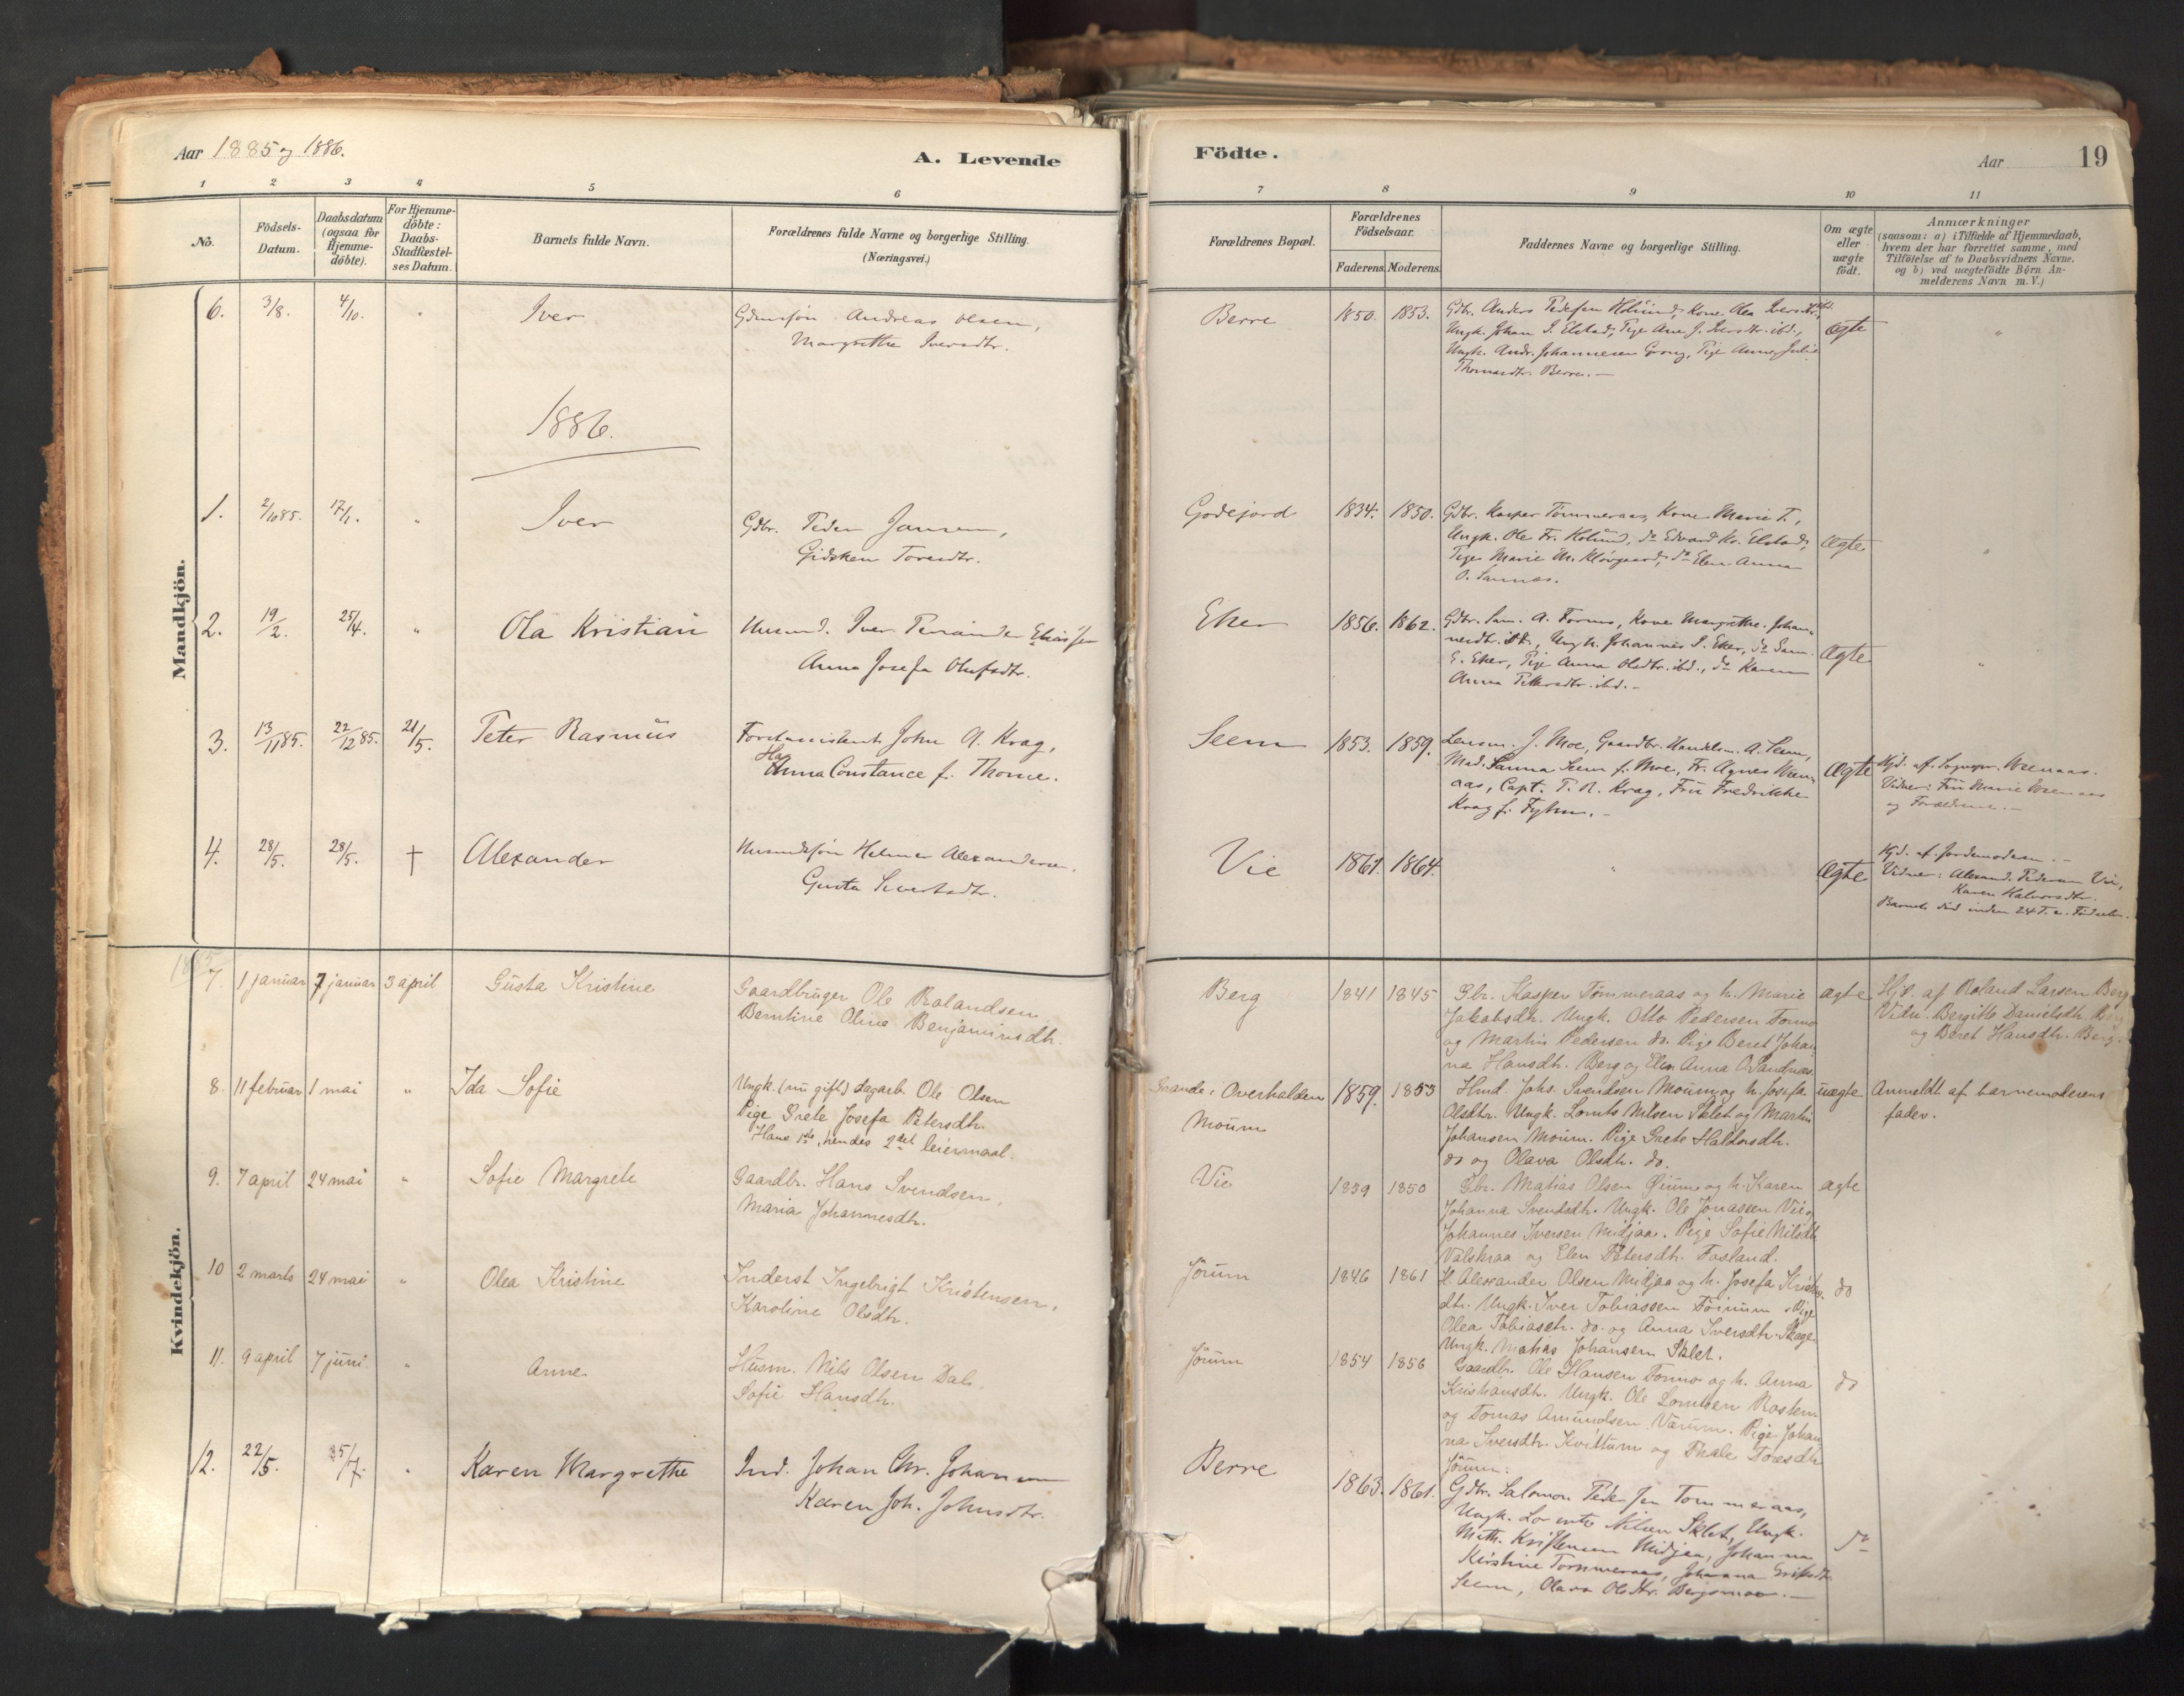 Aar 1885 og 1886.
A. Levende
Födte.
Aar
19
1 2 3 4 5 6 7 8 9 10 11
No.
Födsels-
Datum.
Daabsdatum
(ogsaa for
Hjemme-
döbte).
For Hjemme-
döbte:
Daabs-
Stadfæstel-
ses Datum.
Barnets fulde Navn.
Forældrenes fulde Navne og borgerlige Stilling.
(Næringsvei.)
Forældrenes Bopæl.
Forældrenes
Födselsaar.
Faderens. Moderens.
Faddernes Navne og borgerlige Stilling.
Om ægte
eller
uægte
födt.
Anmærkninger
(saasom: a) i Tilfælde af Hjemmedaab,
hvem der har forrettet samme, med
Tilföielse af to Daabsvidners Navne.
og b) ved uægtefödte Børn An-
melderens Navn m. V.)
Mandkjön.
6. 3/8. 4/10. " Iver
Gdmssøn Andreas Olsen,
Margrethe Iversdtr.
Berre 1850. 1853.
Gdbr. Anders Pedersen Hølund, Kone Olea Iversdtr. ibd.
Ungk. Johan I. Elstad, Pige Ane J. Iversdtr. ibd.,
Ungk. Andr. Johannesen Grong, Pige Anne Julie
Thomasdtr. Berre. —
Ægte "
1886.
1. 2/10 85. 17/1. " Iver
Gdbr. Peder Jansen,
Gidsken Toresdtr.
Godejord 1834. 1850.
Gdbr. Kasper Tømmeraas, Kone Marie T.,
Ungk. Ole Fr. Hølund, do Edvard Kr. Elstad,
Pige Marie M. Kløvgaard, do Elen Anna
O. Sannes.
Ægte "
2. 19/2. 25/4. " Ola Kristian
Husmd. Iver Penander Eliassen
Anna Josefa Olufsdtr.
Eker 1856. 1862.
Gdbr. Sam. A. Formo, Kone Margrethe Johan-
nesdtr. ibd., Ungk. Johannes S. Eker, do Sam.
E. Eker, Pige Anna Olsdtr. ibd., do Karen
Anna Pettersdtr. ibd. —
Ægte "
3. 13/11 85. 22/12 85. 21/5. Peter Rasmus
Forstassistent John A. Krag,
Hu Anna Constance f. Thorne.
Seem 1853. 1859.
Lensm. J. Moe, Gaardbr. Handelsm. A. Seem,
Mad. Sanna Seem f. Moe, Fr. Agnes
aas, Capt. P. R. Krag, Fru Fredrikke
Krag f. Fyhn. —
Ægte
Hjd. af Sognepr.
Vidner: Fru Marie
og Forældrene. —
4. 28/5. 28/5. † Alexander
Husmandssøn Helmer Alexandersen,
Gusta Sivertsdtr.
Vie 1861. 1864. " Ægte
Hjd. af Jordemoderen. —
Vidner: Alexand. Pedersen Vie,
Karen Halvorsdtr.
Barnet död inden 24 T. e. Födselen.
Kvindekjön.
1885
7. 1 januar 7 januar 3 april Gusta Kristine
Gaardbruger Ole Rolandsen
Berntine Oline Benjaminsdtr.
Berg 1841 1845
Gbr. Kasper Tömmeraas og h. Marie
Jakobsdtr. Ungk. Otto Pedersen Formo
og Martin Pedersen do. Pige Beret Johan-
na Hansdtr. Berg og Elen Anna O. Sandnes.
ægte
Hjd. af Roland Larsen Berg
Vidn. Bergitte Danielsdtr. Berg
og Beret Hansdtr. Berg.
8. 11 februar 1 mai " Ida Sofie
Ungk. (nu gift) dagarb. Ole Olsen
Pige Grete Josefa Petersdtr.
Hans 1ste, hendes 2det leiermaal.
Grande i Overhalden
Moum
1859. 1853
Hmd. Johs. Svendsen Moum og h. Josefa
Olsdtr. Ungk. Lornts Nilsen Sklet og Martin
Johansen Moum. Pige Grete Haldorsdtr.
do og Olava Olsdtr. do.
uægte
Anmeldt af barnemoderens
fader.
9. 7 april 24 mai " Sofie Margrete
Gaardbr. Hans Svendsen,
Maria Johannesdtr.
Vie 1839 1850
Gbr. Matias Olsen Øium og h. Karen
Johanna Svendsdtr. Ungk. Ole Jonassen Vie,
Johannes Iversen Midjaa. Pige Sofie Nilsdtr.
Valskraa og Elen Petersdtr. Fosland.
ægte
10 2 marts 24 mai " Olea Kristine
Inderst Ingebrigt Kristensen,
Karoline Olsdtr.
Jörum 1846 1861
H. Alexander Olsen Midjaa og h. Josefa Kristens-
dtr. Ungk. Iver Tobiassen Jörum. Pige
Olea Tobiasdtr. do. og Anna Iversdtr. Skage.
Ungk. Matias Johansen Sklet.
do
11. 9 april 7 juni " Anne
Husm. Nils Olsen Dal.
Sofie Hansdtr.
Jörum 1854 1856
Gaardbr. Ole Hansen Formo og h. Anna
Kristiansdtr. Ungk. Ole Lorntsen Rostem
og Tomas Amundsen Værum. Pige Johan-
na Iversdtr. Kvittum og Thale Toresdtr.
Jörum.
do
12. 22/5. 25/7. " Karen Margrethe
Ind. Johan Chr. Johansen
Karen Joh. Johnsdtr.
Berre 1863. 1861.
Gdbr. Salomon Pedersen Tommeraas,
Ungk. Lorents Nilsen Sklet, Ungk.
Math. Kristensen Midjaa, Johanna
Kirstine Tommeraas, Johanna Eriksdtr.
Seem, Olava Olsdtr. Bergsmoe. —
do